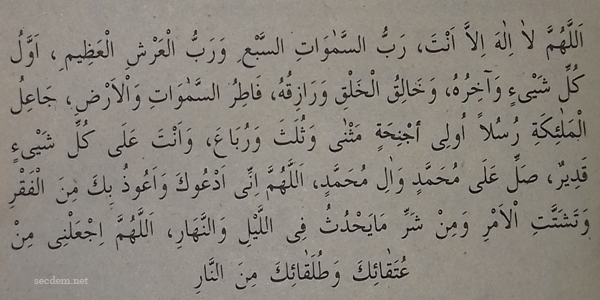 اَللّٰهُمَّ لاَ اِلٰهَ اِلاَّ اَنْتَ، رَبُّ السَّمٰوَاتِ السَّبْعِ وَرَبُّ الْعَرْشِ الْعَظِيمِ، اَوَّلُ
كُلِّ شَيْىءٍ وَآخِرُهُ، وَخَالِقُ الْخَلْقِ وَرَازِقُهُ، فَاطِرُ السَّمٰوَاتِ وَالْاَرْضِ، جَاعِلُ
الْمَلٰئِكَةِ رُسُلاً اُولِى أجْنِحَةٍ مَثْنٰى وَثُلٰثَ وَرُبَاعَ، وَاَنْتَ عَلَى كُلِّ شَيْىءٍ
قَدِيرٌ، صَلِّ عَلَى مُحَمَّدٍ وَاٰلِ مُحَمَّدٍ، اَللّٰهُمَّ اِنِّى اَدْعُوكَ وَاَعُوذُ بِكَ مِنَ الْفَقْرِ
وَتَشَتُّتِ الْاَمْرِ وَمِنْ شَرِّ مَايَحْدُثُ فِى اللَّيْلِ وَالنَّهَارِ، اَللّٰهُمَّ اجْعَلْنِى مِنْ
عُتَقَائِكَ وَطُلَقَائِكَ مِنَ النَّارِ
secdem.net